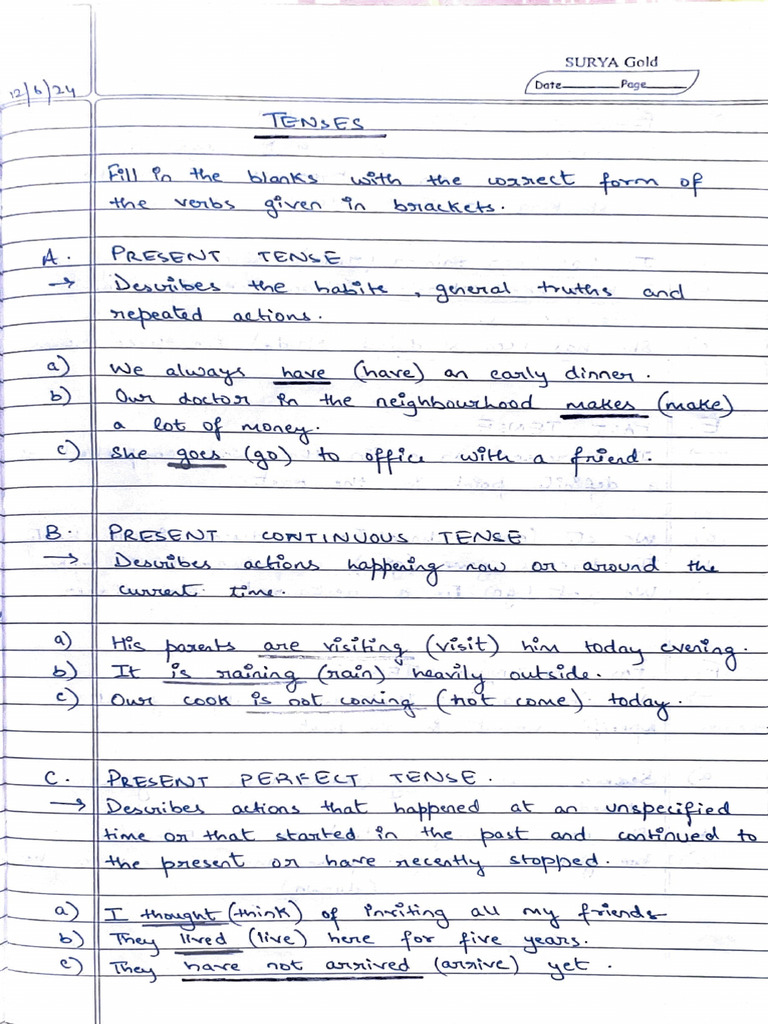 SURYA Gold
Date Page
12/6/24
TENSES
Fill in the blanks with the correct form of
the verbs given in brackets.
A. PRESENT TENSE
→ Describes the habits, general truths and
repeated actions.
a) We always have (have) an early dinner.
b) Our doctor in the neighbourhood makes (make)
a lot of money.
c) She goes (go) to office with a friend.
B. PRESENT CONTINUOUS TENSE
→ Describes actions happening now or around the
current time.
a) His parents are visiting (visit) him today evening.
b) It is raining (rain) heavily outside.
c) Our cook is not coming (not come) today.
C. PRESENT PERFECT TENSE.
→ Describes actions that happened at an unspecified
time or that started in the past and continued to
the present or have recently stopped.
a) I thought (think) of inviting all my friends
b) They lived (live) here for five years.
c) They have not arrived (arrive) yet.